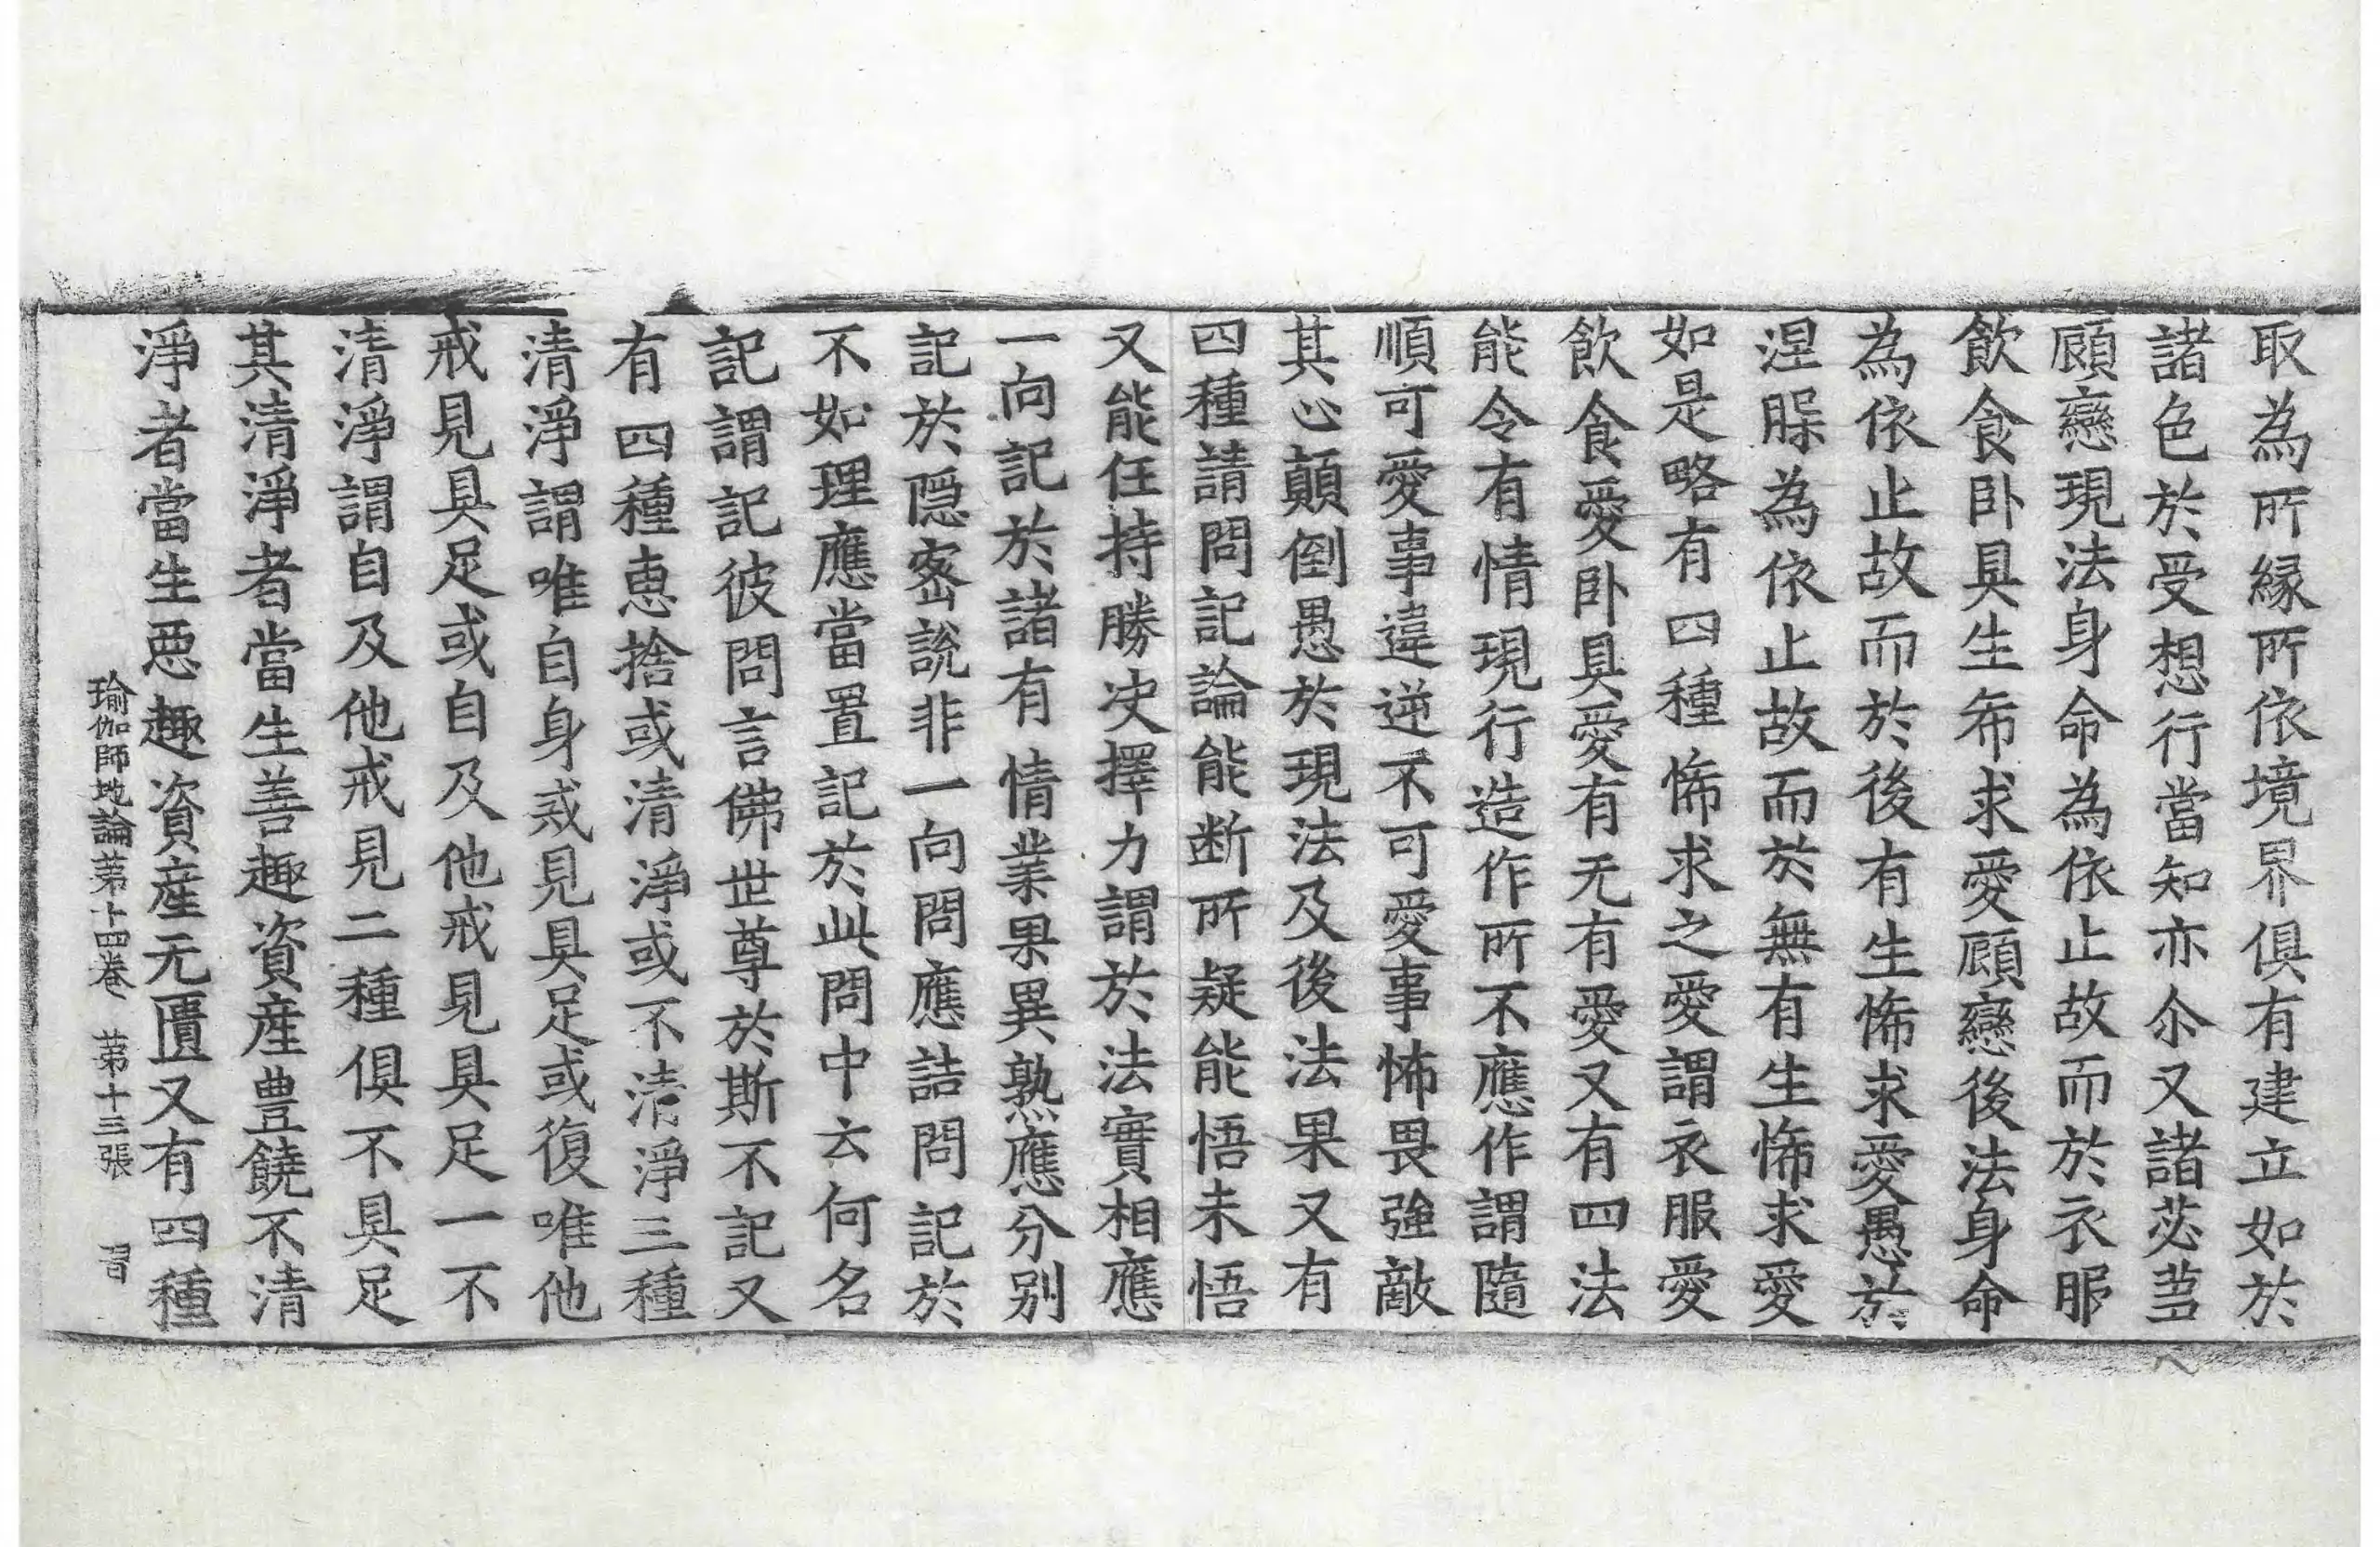 取為所縁所依境界俱有建立如於
諸色於受想行當知亦尒又諸苾蒭
顧戀現法身命為依止故而於衣服
飲食卧具生希求愛顧戀後法身命
為依止故而於後有生悕求愛愚於
涅槃為依止故而於無有生悕求愛
如是略有四種悕求之愛謂衣服愛
飲食愛卧具愛有无有愛又有四法
能令有情現行造作所不應作謂隨
順可愛事違逆不可愛事怖畏強敵
其心顛倒愚於現法及後法果又有
四種請問記論能断所疑能悟未悟
又能任持勝决擇力謂於法實相應
一向記於諸有情業果異熟應分別
記於隱宻說非一向問應詰問記於
不如理應當置記於此問中云何名
記謂記彼問言佛世尊於斯不記又
有四種惠捨或清淨或不清淨三種
清淨謂唯自身戒見具足或復唯他
戒見具足或自及他戒見具足一不
清淨謂自及他戒見二種俱不具足
其清淨者當生善趣資産豊饒不清
淨者當生悪趣資産无匱又有四種
瑜伽師地論苐十四卷 苐十三張